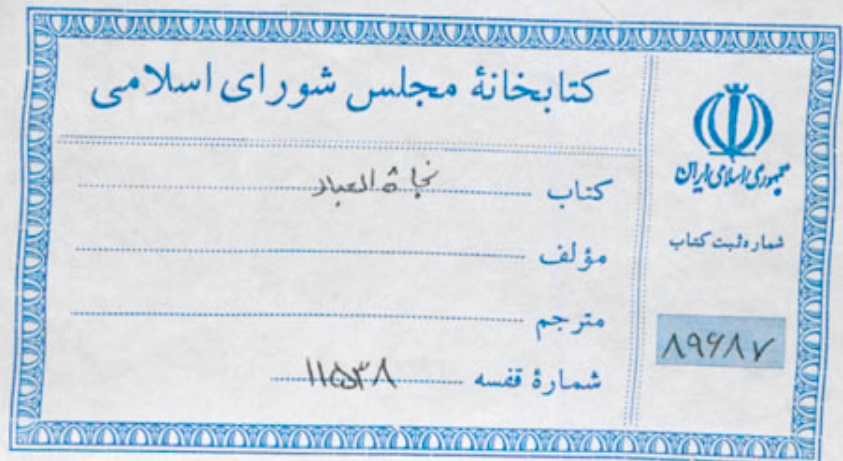 کتابخانهٔ مجلس شورای اسلامی
کتاب نجاة العباد
مؤلف
مترجم
شمارهٔ قفسه ۱۱۵۳۸
جمهوری اسلامی ایران
شماره ثبت کتاب
۸۹۶۸۷